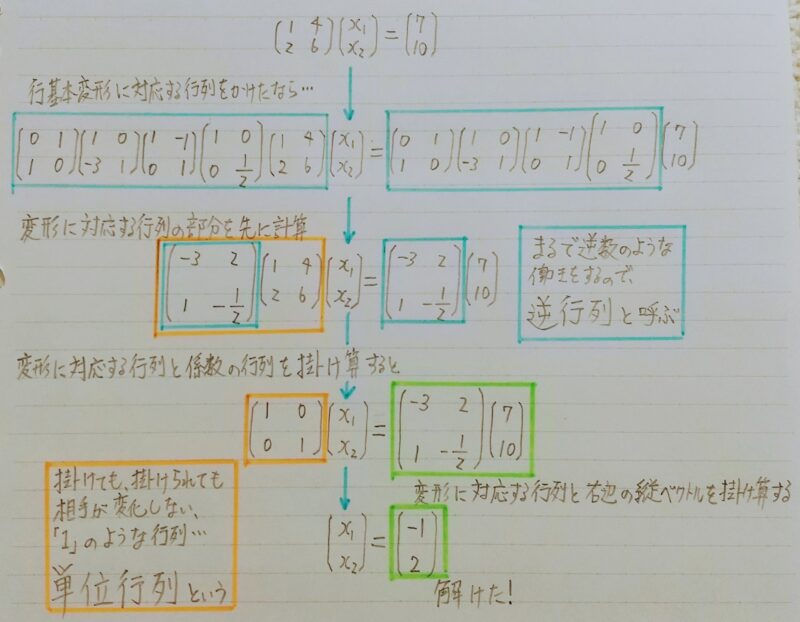 (1 4
2 6)(x₁
x₂)=(7
10)
行基本変形に対応する行列をかけたなら…
(0 1
1 0)(1 0
-3 1)(1 -1
0 1)(1 0
0 1/2)(1 4
2 6)(x₁
x₂)=(0 1
1 0)(1 0
-3 1)(1 -1
0 1)(1 0
0 1/2)(7
10)
変形に対応する行列の部分を先に計算
(-3 2
1 -1/2)(1 4
2 6)(x₁
x₂)=(-3 2
1 -1/2)(7
10)
まるで逆数のような
働きをするので、
逆行列と呼ぶ
変形に対応する行列と係数の行列を掛け算すると
(1 0
0 1)(x₁
x₂)=(-3 2
1 -1/2)(7
10)
掛けても、掛けられても
相手が変化しない、
「1」のような行列…
単位行列という
変形に対応する行列と右辺の縦ベクトルを掛け算する
(x₁
x₂)=(-1
2)
解けた!